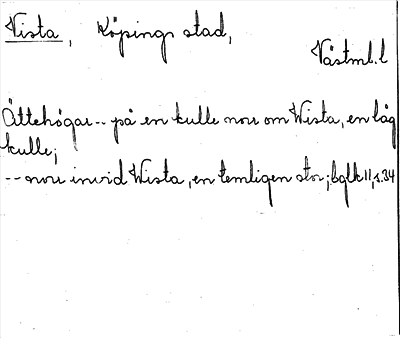 Vista, Köpings stad,
Västml.l
Ättehögar -- på en kulle norr om Wista, en låg
kulle;
-- norr invid Wista, en temligen stor; bglk 11, s.34